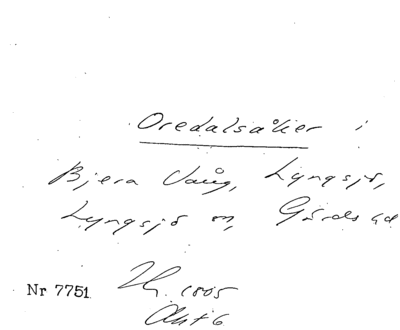 Oredalsåker i
Bjera Vång, Lyngsjö,
Lyngsjö sn, Gärds hd
Nr 7751
1805
Akt 6